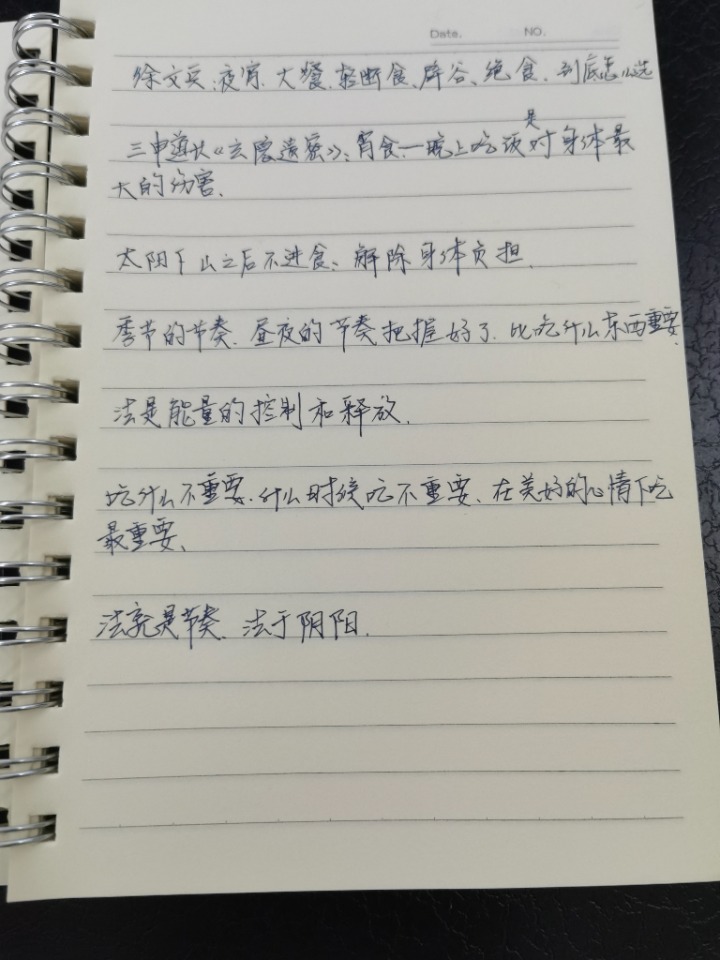 Date. NO.
徐文兵:夜宵、大餐、轻断食、辟谷、绝食、到底怎么选
是
三申道长《玄隐遗密》:宵食—晚上吃饭对身体最
大的伤害.
太阳下山之后不进食、解除身体负担.
季节的节奏.昼夜的节奏把握好了.比吃什么东西重要.
法是能量的控制和释放.
吃什么不重要.什么时候吃不重要、在美好的心情下吃
最重要、
法就是节奏.法于阴阳.